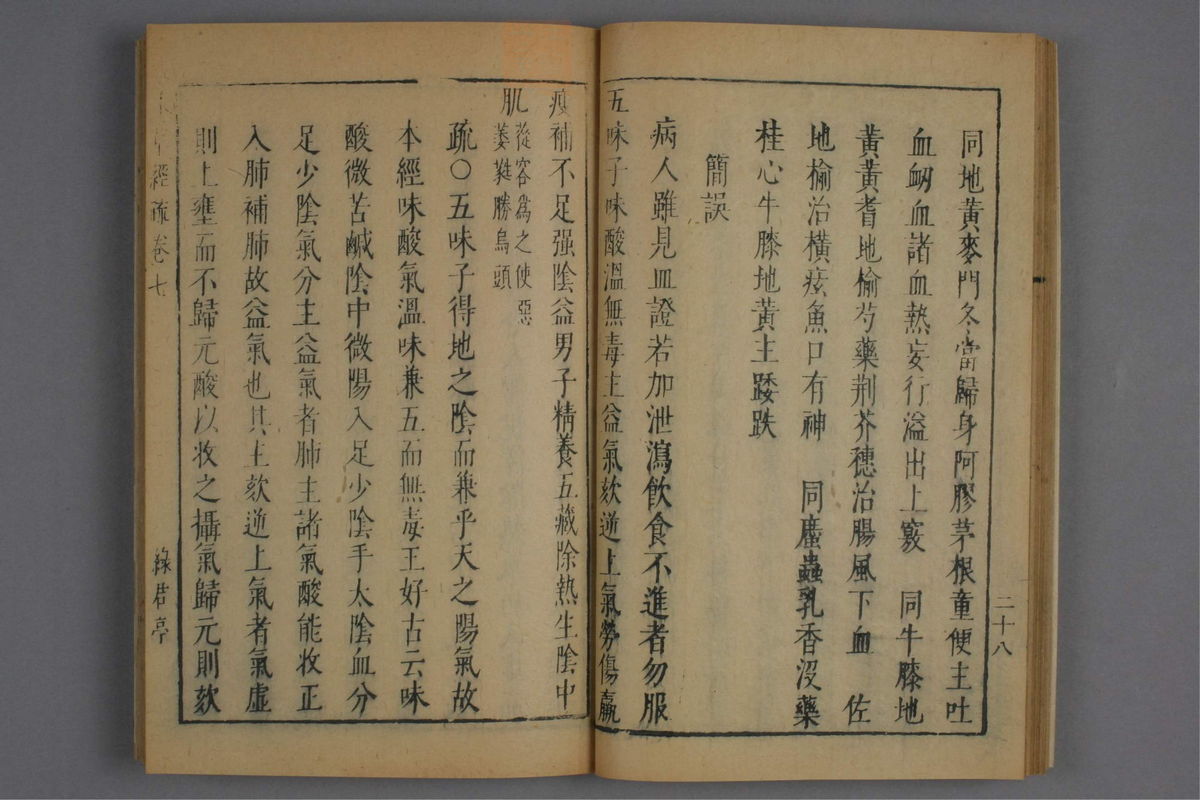 二十八
同地黃麥門冬當歸身阿膠茅根童便主吐
血衂血諸血熱妄行溢出上竅　同牛膝地
黃黃耆地榆芍藥荆芥穗治腸風下血　佐
地榆治橫痃魚口有神　同䗪蟲乳香沒藥
桂心牛膝地黃主踒跌
簡誤
病人雖見血證若加泄瀉飲食不進者勿服
五味子味酸溫無毒主益氣欬逆上氣勞傷羸
瘦補不足强陰益男子精養五藏除熱生陰中
肌
蓯容爲之使惡
萎蕤勝烏頭
疏○五味子得地之陰而兼乎天之陽氣故
本經味酸氣溫味兼五而無毒王好古云味
酸微苦鹹陰中微陽入足少陰手太陰血分
足少陰氣分主益氣者肺主諸氣酸能收正
入肺補肺故益氣也其主欬逆上氣者氣虛
則上壅而不歸元酸以收之攝氣歸元則欬
經疏卷七
綠君亭